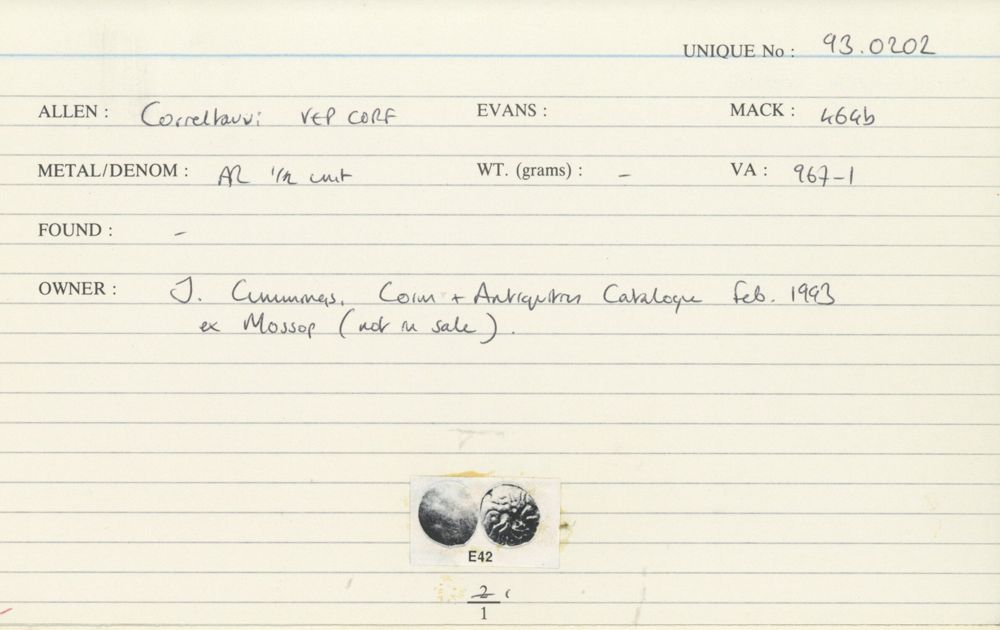 UNIQUE No : 93.0202
ALLEN : Correltauvi VEP CORF EVANS : MACK : 464b
METAL/DENOM : AR 1/2 unit WT. (grams) : – VA : 967-1
FOUND : –
OWNER : J. Cummings, Coin + Antiquities Catalogue Feb. 1993
ex Mossop (not in sale).
E42
2
1